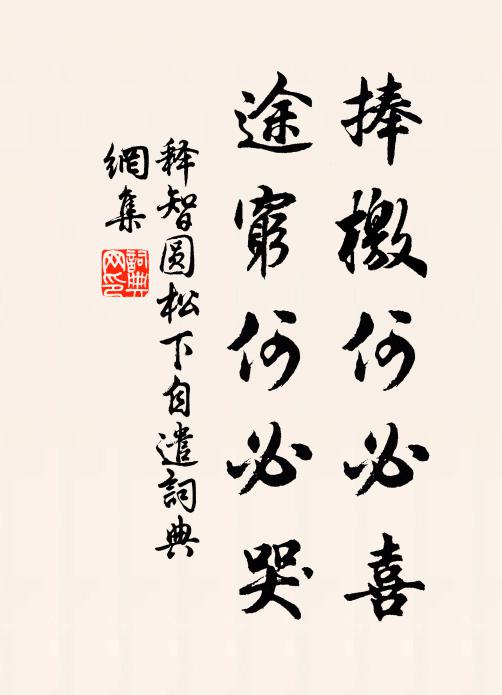 捧檄何必喜
途窮何必哭
释智圆松下自遣詞典
網集
詞典
网印